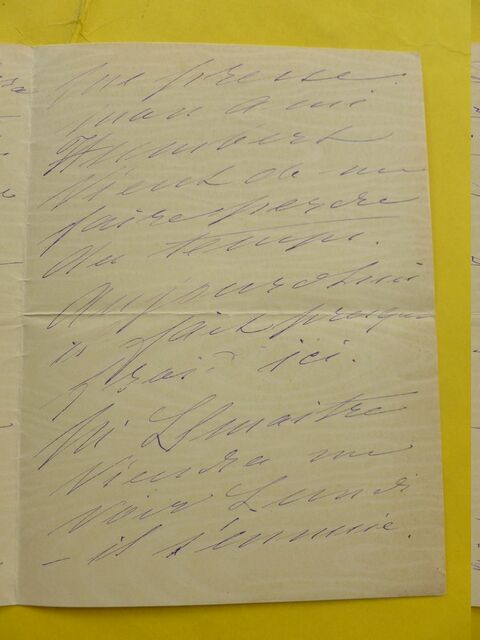 presse
Humbert
vient de me
faire perdre
du temps.
Aujourd'hui
il fait presque
froid ici.
Lemaitre
viendra me
voir Lundi
- il s'ennuie.